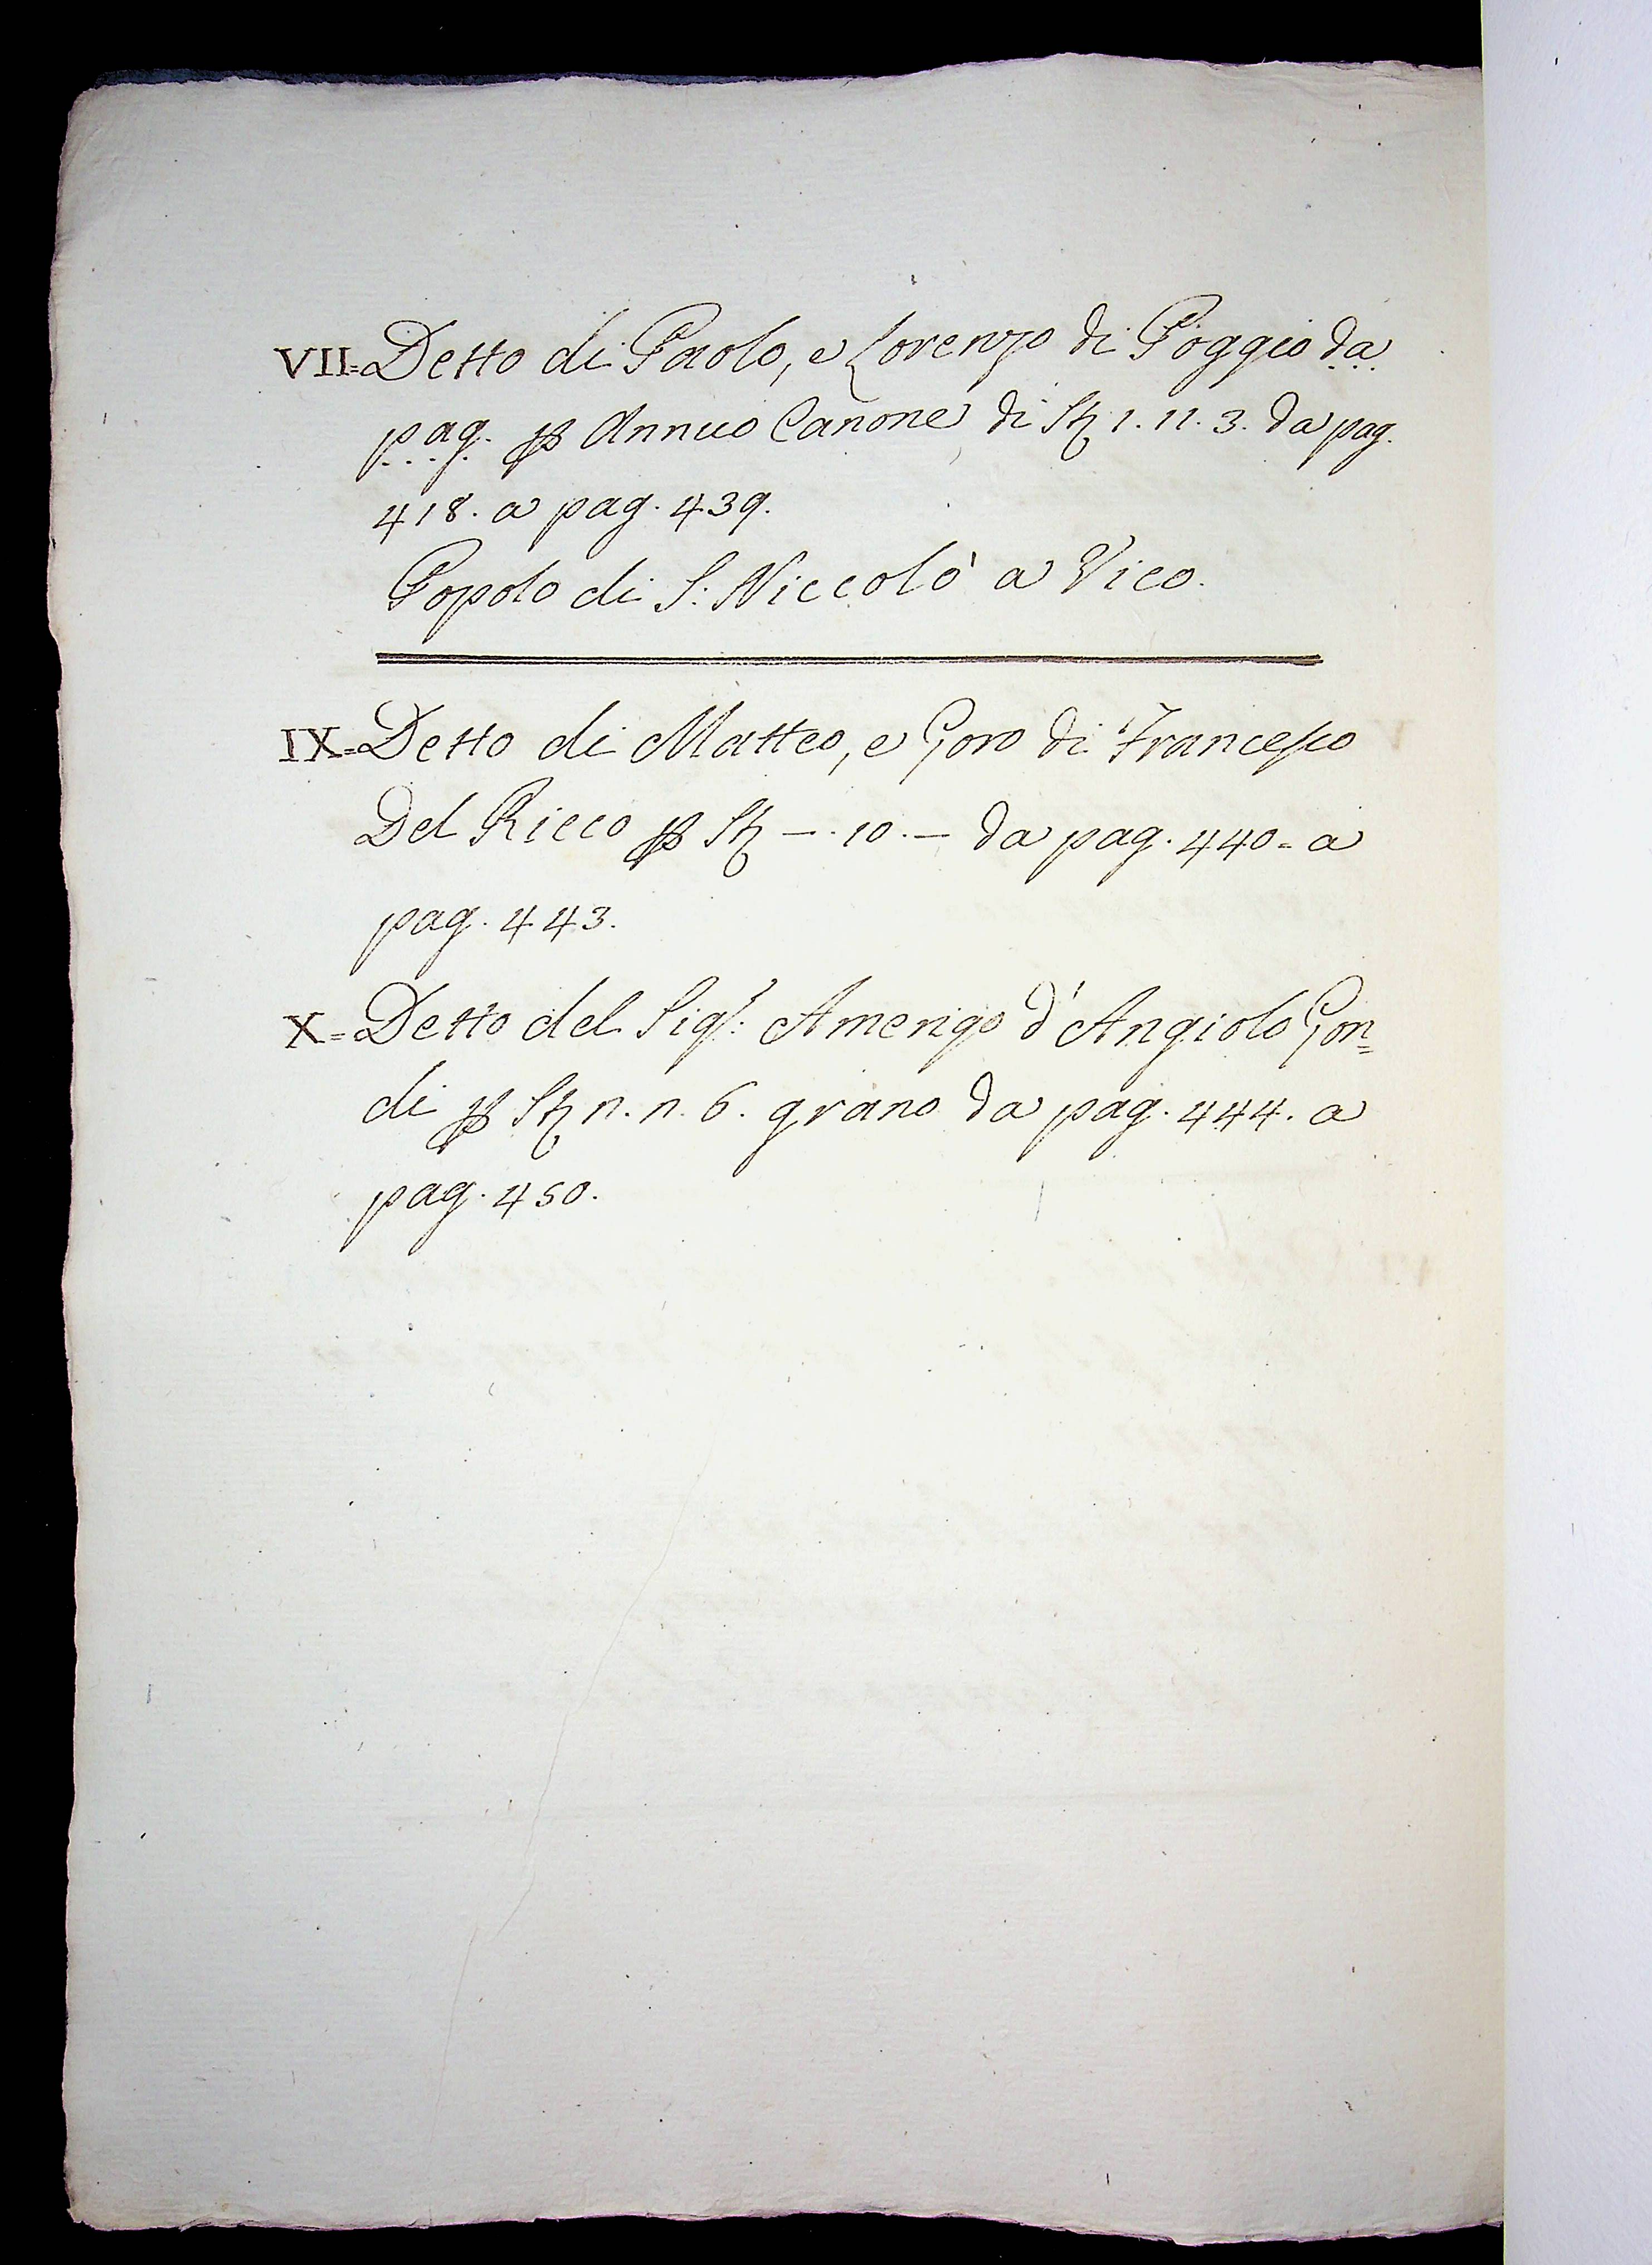 VII= Detto di Paolo, e Lorenzo di Poggio da
pag. ꝑ Annuo Canone di St 1. 11. 3. da pag.
418. a pag. 439.
Popolo di S: Niccolò a Vico.
IX= Detto di Matteo, e Goro di Francesco
Del Ricco ꝑ St — . 10. — da pag. 440 = a
pag. 443.
X= Detto del Sigr: Amerigo d'Angiolo Gon=
di ꝑ St n. n. 6. grano da pag. 444. a
pag. 450.